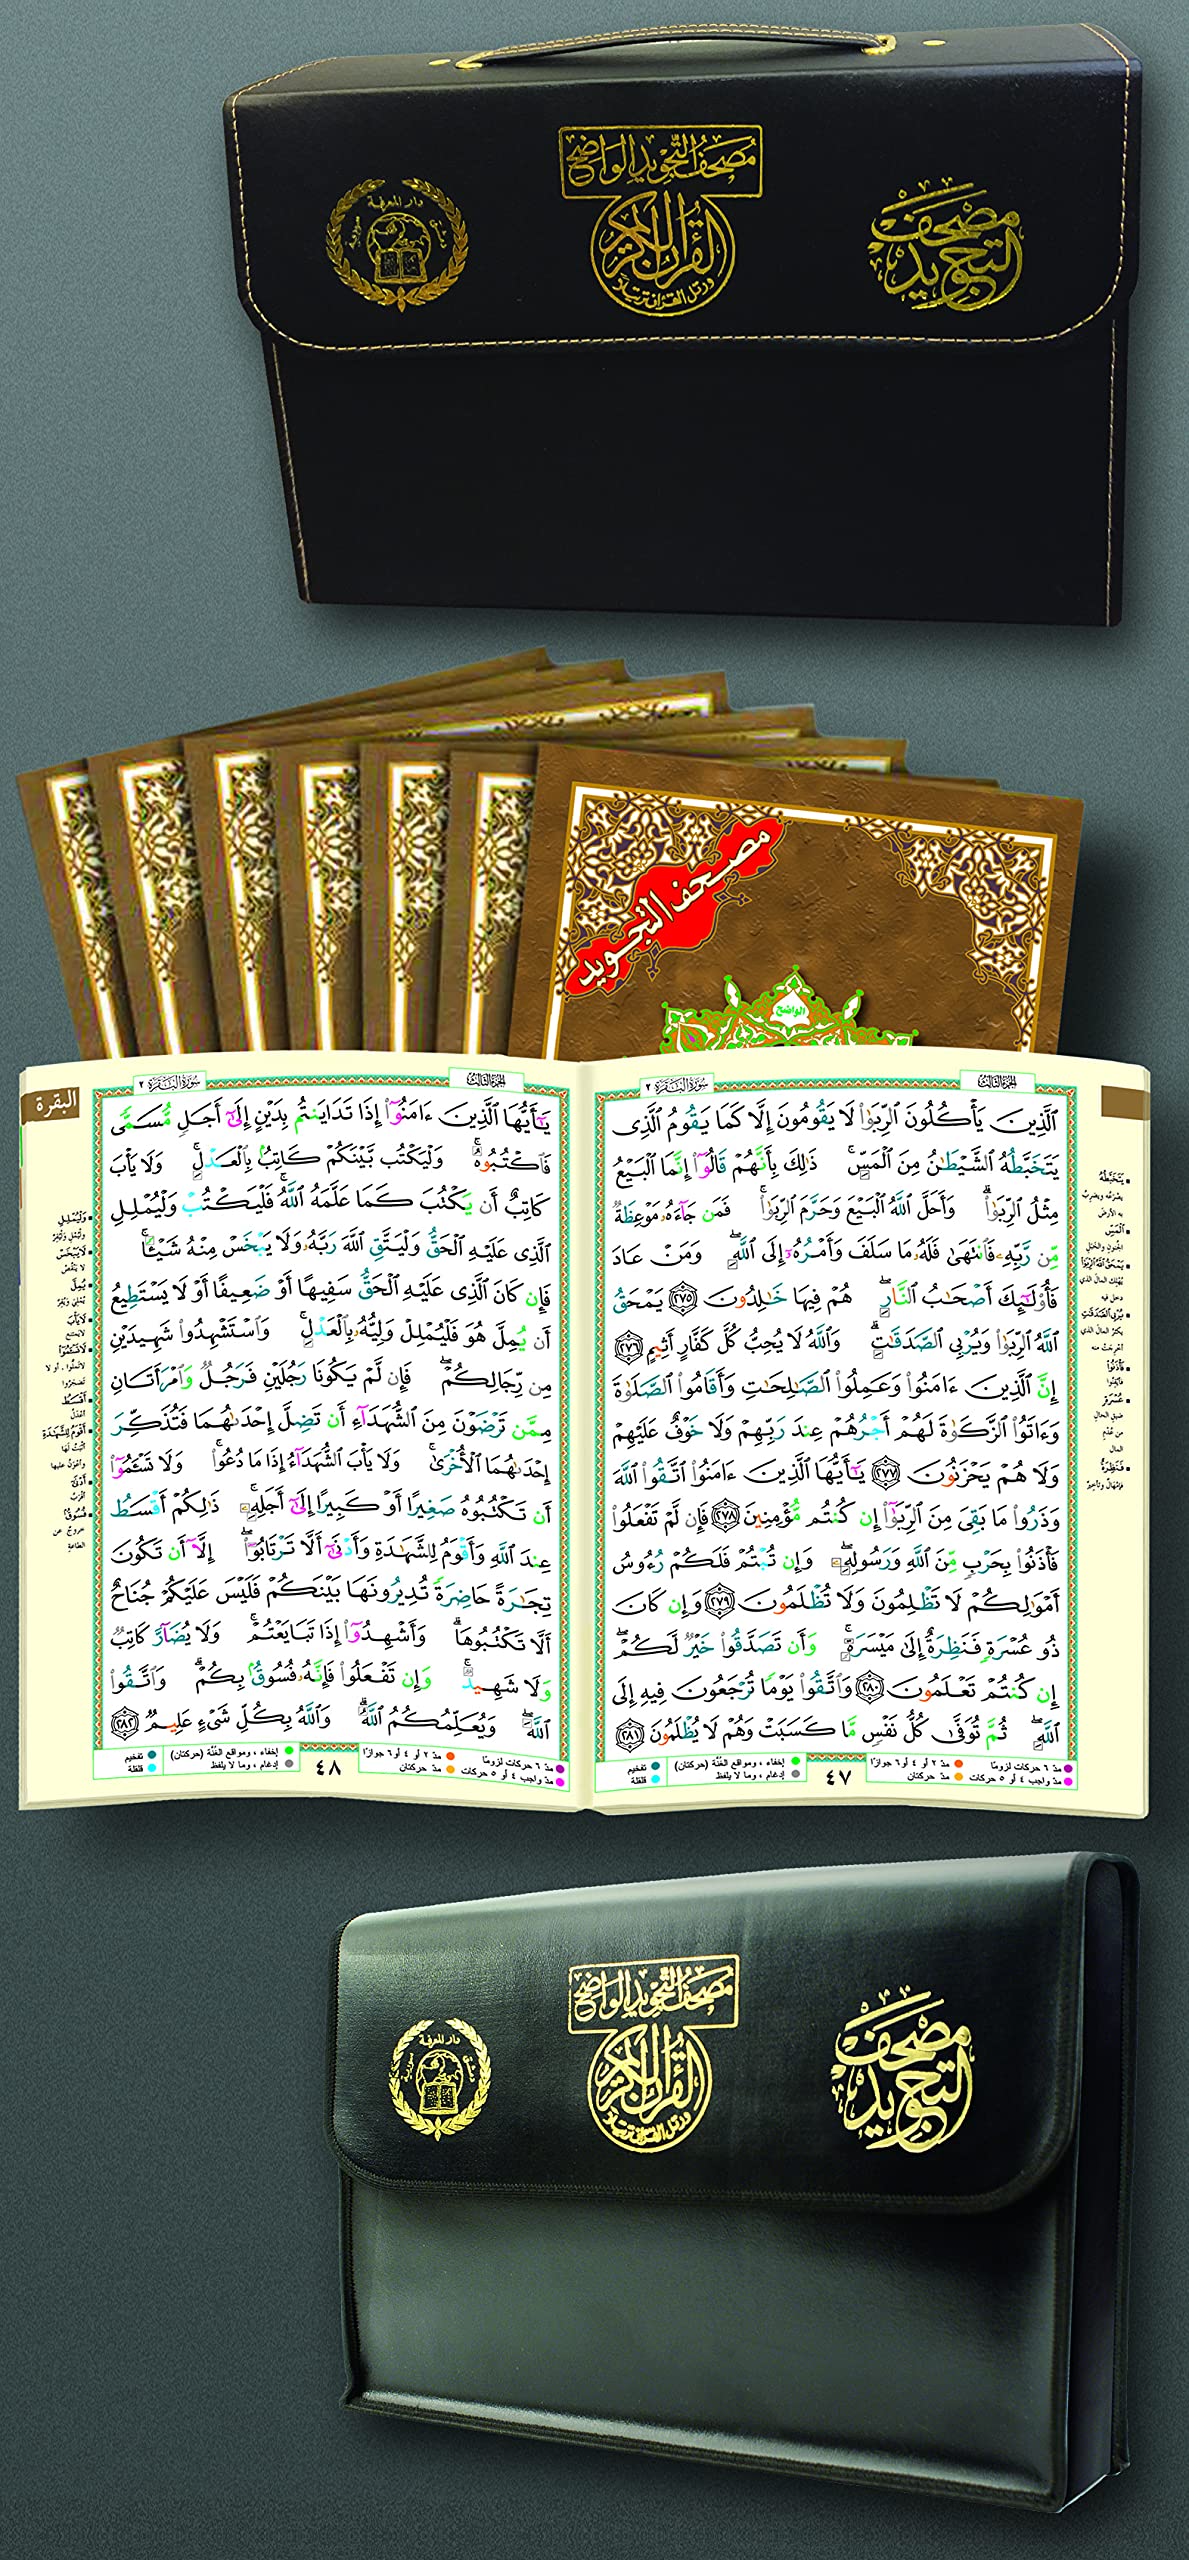 مصحف التجويد الواضح
القرآن الكريم
ورتل القرآن ترتيلا
مصحف
التجويد
دار المعرفة
دمشق
سورية
مصحف التجويد
الواضح
الجزء الثالث
سورة البقرة ٢
ٱلَّذِينَ يَأۡكُلُونَ ٱلرِّبَوٰاْ لَا يَقُومُونَ إِلَّا كَمَا يَقُومُ ٱلَّذِى
يَتَخَبَّطُهُ ٱلشَّيۡطَٰنُ مِنَ ٱلۡمَسِّۚ ذَٰلِكَ بِأَنَّهُمۡ قَالُوٓاْ إِنَّمَا ٱلۡبَيۡعُ
مِثۡلُ ٱلرِّبَوٰاْۗ وَأَحَلَّ ٱللَّهُ ٱلۡبَيۡعَ وَحَرَّمَ ٱلرِّبَوٰاْۚ فَمَن جَآءَهُۥ مَوۡعِظَةٞ
مِّن رَّبِّهِۦ فَٱنتَهَىٰ فَلَهُۥ مَا سَلَفَ وَأَمۡرُهُۥٓ إِلَى ٱللَّهِۖ وَمَنۡ عَادَ
فَأُوْلَٰٓئِكَ أَصۡحَٰبُ ٱلنَّارِۖ هُمۡ فِيهَا خَٰلِدُونَ ٢٧٥ يَمۡحَقُ
ٱللَّهُ ٱلرِّبَوٰاْ وَيُرۡبِى ٱلصَّدَقَٰتِۗ وَٱللَّهُ لَا يُحِبُّ كُلَّ كَفَّارٍ أَثِيمٍ ٢٧٦
إِنَّ ٱلَّذِينَ ءَامَنُواْ وَعَمِلُواْ ٱلصَّٰلِحَٰتِ وَأَقَامُواْ ٱلصَّلَوٰةَ
وَءَاتَوُاْ ٱلزَّكَوٰةَ لَهُمۡ أَجۡرُهُمۡ عِندَ رَبِّهِمۡ وَلَا خَوۡفٌ عَلَيۡهِمۡ
وَلَا هُمۡ يَحۡزَنُونَ ٢٧٧ يَٰٓأَيُّهَا ٱلَّذِينَ ءَامَنُواْ ٱتَّقُواْ ٱللَّهَ
وَذَرُواْ مَا بَقِىَ مِنَ ٱلرِّبَوٰٓاْ إِن كُنتُم مُّؤۡمِنِينَ ٢٧٨ فَإِن لَّمۡ تَفۡعَلُواْ
فَأۡذَنُواْ بِحَرۡبٖ مِّنَ ٱللَّهِ وَرَسُولِهِۦۖ وَإِن تُبۡتُمۡ فَلَكُمۡ رُءُوسُ
أَمۡوَٰلِكُمۡ لَا تَظۡلِمُونَ وَلَا تُظۡلَمُونَ ٢٧٩ وَإِن كَانَ
ذُو عُسۡرَةٖ فَنَظِرَةٌ إِلَىٰ مَيۡسَرَةٖۚ وَأَن تَصَدَّقُواْ خَيۡرٞ لَّكُمۡۖ
إِن كُنتُمۡ تَعۡلَمُونَ ٢٨٠ وَٱتَّقُواْ يَوۡمٗا تُرۡجَعُونَ فِيهِ إِلَى
ٱللَّهِۖ ثُمَّ تُوَفَّىٰ كُلُّ نَفۡسٖ مَّا كَسَبَتۡ وَهُمۡ لَا يُظۡلَمُونَ ٢٨١
مدّ ٦ حركات لزومًا مدّ ٢ أو ٤ أو ٦ جوازًا إخفاء ، ومواقع الغُنَّة (حركتان) تفخيم
مدّ واجب ٤ أو ٥ حركات مدّ حركتان إدغام ، وما لا يلفظ قلقلة
٤٧
يَتَخَبَّطُهُ
يصْرَعُه ويضربُ
به الأرضَ
ٱلۡمَسِّ
الجُنونِ والخَبَلِ
يَمۡحَقُ ٱللَّهُ ٱلرِّبَوٰاْ
يُهْلِكُ المالَ الذي
دخلَ فيه
يُرۡبِى ٱلصَّدَقَٰتِ
يكثرُ المالَ الذي
أُخْرِجَتْ منه
فَأۡذَنُواْ
فأيْقِنُوا
عُسۡرَةٍ
ضيقِ الحالِ
من عُدْمِ
المال
فَنَظِرَةٌ
فإمْهالٌ وتأخِيرٌ
الجزء الثالث
سورة البقرة ٢
البقرة
يَٰٓأَيُّهَا ٱلَّذِينَ ءَامَنُوٓاْ إِذَا تَدَايَنتُم بِدَيۡنٍ إِلَىٰٓ أَجَلٖ مُّسَمّٗى
فَٱكۡتُبُوهُۚ وَلۡيَكۡتُب بَّيۡنَكُمۡ كَاتِبُۢ بِٱلۡعَدۡلِۚ وَلَا يَأۡبَ
كَاتِبٌ أَن يَكۡتُبَ كَمَا عَلَّمَهُ ٱللَّهُۚ فَلۡيَكۡتُبۡ وَلۡيُمۡلِلِ
ٱلَّذِى عَلَيۡهِ ٱلۡحَقُّ وَلۡيَتَّقِ ٱللَّهَ رَبَّهُۥ وَلَا يَبۡخَسۡ مِنۡهُ شَيۡـٔٗاۚ
فَإِن كَانَ ٱلَّذِى عَلَيۡهِ ٱلۡحَقُّ سَفِيهًا أَوۡ ضَعِيفًا أَوۡ لَا يَسۡتَطِيعُ
أَن يُمِلَّ هُوَ فَلۡيُمۡلِلۡ وَلِيُّهُۥ بِٱلۡعَدۡلِۚ وَٱسۡتَشۡهِدُواْ شَهِيدَيۡنِ
مِن رِّجَالِكُمۡۖ فَإِن لَّمۡ يَكُونَا رَجُلَيۡنِ فَرَجُلٞ وَٱمۡرَأَتَانِ
مِمَّن تَرۡضَوۡنَ مِنَ ٱلشُّهَدَآءِ أَن تَضِلَّ إِحۡدَىٰهُمَا فَتُذَكِّرَ
إِحۡدَىٰهُمَا ٱلۡأُخۡرَىٰۚ وَلَا يَأۡبَ ٱلشُّهَدَآءُ إِذَا مَا دُعُواْۚ وَلَا تَسۡـَٔمُوٓاْ
أَن تَكۡتُبُوهُ صَغِيرًا أَوۡ كَبِيرًا إِلَىٰٓ أَجَلِهِۦۚ ذَٰلِكُمۡ أَقۡسَطُ
عِندَ ٱللَّهِ وَأَقۡوَمُ لِلشَّهَٰدَةِ وَأَدۡنَىٰٓ أَلَّا تَرۡتَابُوٓاْۖ إِلَّآ أَن تَكُونَ
تِجَٰرَةً حَاضِرَةٗ تُدِيرُونَهَا بَيۡنَكُمۡ فَلَيۡسَ عَلَيۡكُمۡ جُنَاحٌ
أَلَّا تَكۡتُبُوهَاۗ وَأَشۡهِدُوٓاْ إِذَا تَبَايَعۡتُمۡۚ وَلَا يُضَآرَّ كَاتِبٞ
وَلَا شَهِيدٞۚ وَإِن تَفۡعَلُواْ فَإِنَّهُۥ فُسُوقُۢ بِكُمۡۗ وَٱتَّقُواْ
ٱللَّهَۖ وَيُعَلِّمُكُمُ ٱللَّهُۗ وَٱللَّهُ بِكُلِّ شَىۡءٍ عَلِيمٞ ٢٨٢
مدّ ٦ حركات لزومًا مدّ ٢ أو ٤ أو ٦ جوازًا إخفاء ، ومواقع الغُنَّة (حركتان) تفخيم
مدّ واجب ٤ أو ٥ حركات مدّ حركتان إدغام ، وما لا يلفظ قلقلة
٤٨
وَلۡيُمۡلِلِ
وَلْيُمْلِ وَلْيُقِرَّ
لَا يَبۡخَسۡ
لا ينْقُصْ
يُمِلَّ
يُمْلِيَ ويُقِرَّ
لَا يَأۡبَ
لا يمتنع
لَا تَسۡـَٔمُوٓاْ
لا تَملُّوا ، أو لا
تضجروا
أَقۡسَطُ
أعْدَلُ
أَقۡوَمُ لِلشَّهَٰدَةِ
أثْبَتُ لَها
وأعْوَنُ عليها
أَدۡنَىٰٓ
أقربُ
فُسُوقُۢ
خروجٌ عن
الطاعةِ
مصحف التجويد الواضح
القرآن الكريم
ورتل القرآن ترتيلا
مصحف
التجويد
دار المعرفة
دمشق
سورية